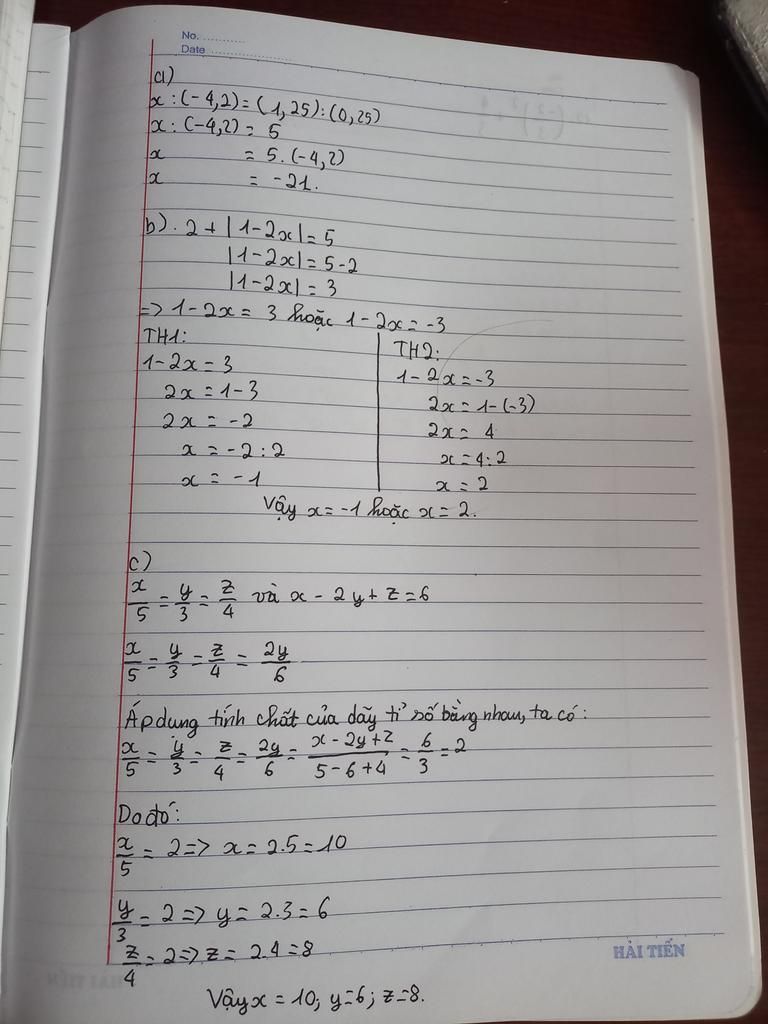 No. ............
Date ........................
a)
x : (-4,2) = (1,25) : (0,25)
x : (-4,2) = 5
x = 5. (-4,2)
x = -21.
b). 2 + |1-2x| = 5
|1-2x| = 5-2
|1-2x| = 3
=> 1-2x = 3 hoặc 1-2x = -3
TH1:
1-2x = 3
2x = 1-3
2x = -2
x = -2 : 2
x = -1
TH2:
1-2x = -3
2x = 1-(-3)
2x = 4
x = 4:2
x = 2
Vậy x = -1 hoặc x = 2.
c)
x/5 = y/3 = z/4 và x - 2y + z = 6
x/5 = y/3 = z/4 = 2y/6
Áp dụng tính chất của dãy tỉ số bằng nhau, ta có:
x/5 = y/3 = z/4 = 2y/6 = x-2y+z/5-6+4 = 6/3 = 2
Do đó:
x/5 = 2 => x = 2.5 = 10
y/3 = 2 => y = 2.3 = 6
z/4 = 2 => z = 2.4 = 8
HẢI TIẾN
Vậy x = 10; y=6; z=8.